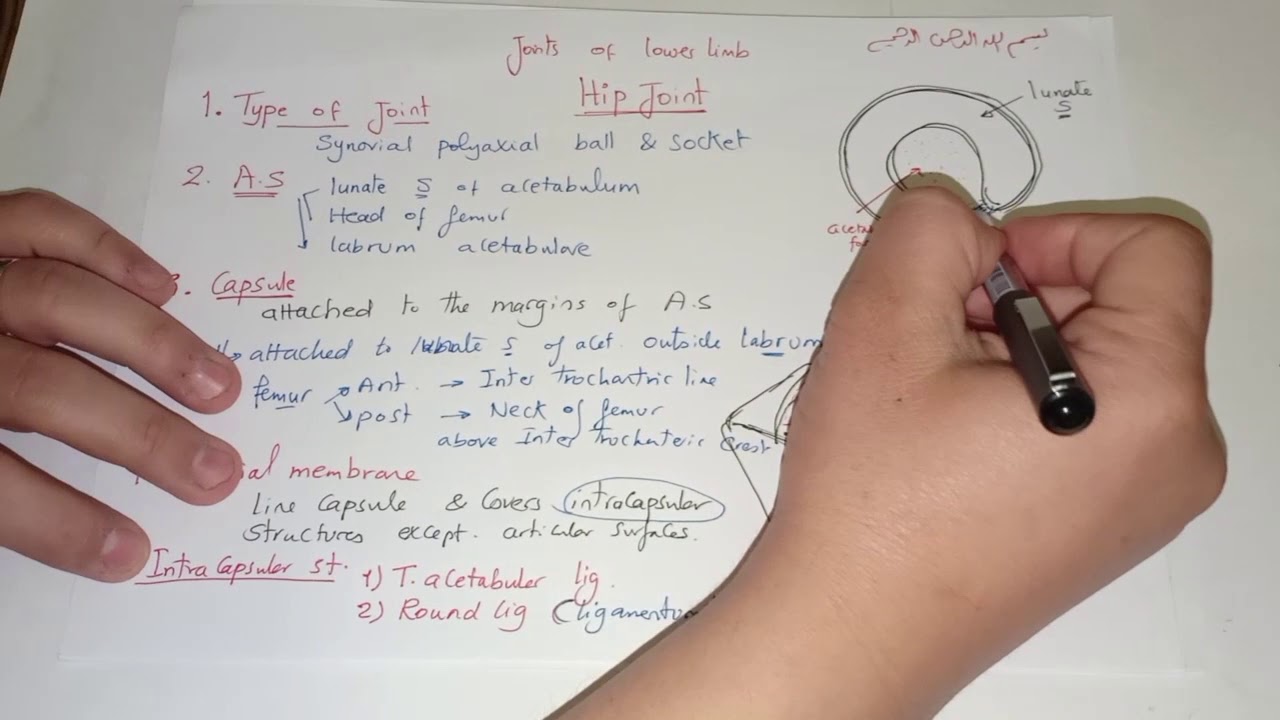 Joints of lower limb
بسم الله الرحمن الرحيم
Hip Joint
lunate S
1. Type of Joint
Synovial polyaxial ball & socket
2. A.S
lunate S of acetabulum
Head of femur
labrum acetabulare
3. Capsule
attached to the margins of A.S
attached to lunate S of acet. outside labrum
femur Ant. → Inter trochantric line
post → Neck of femur
above Inter trochanteric Crest
membrane
line capsule & Covers intracapsular
structures except. articular surfaces.
Intracapsular st.
1) T. acetabuler lig.
2) Round lig